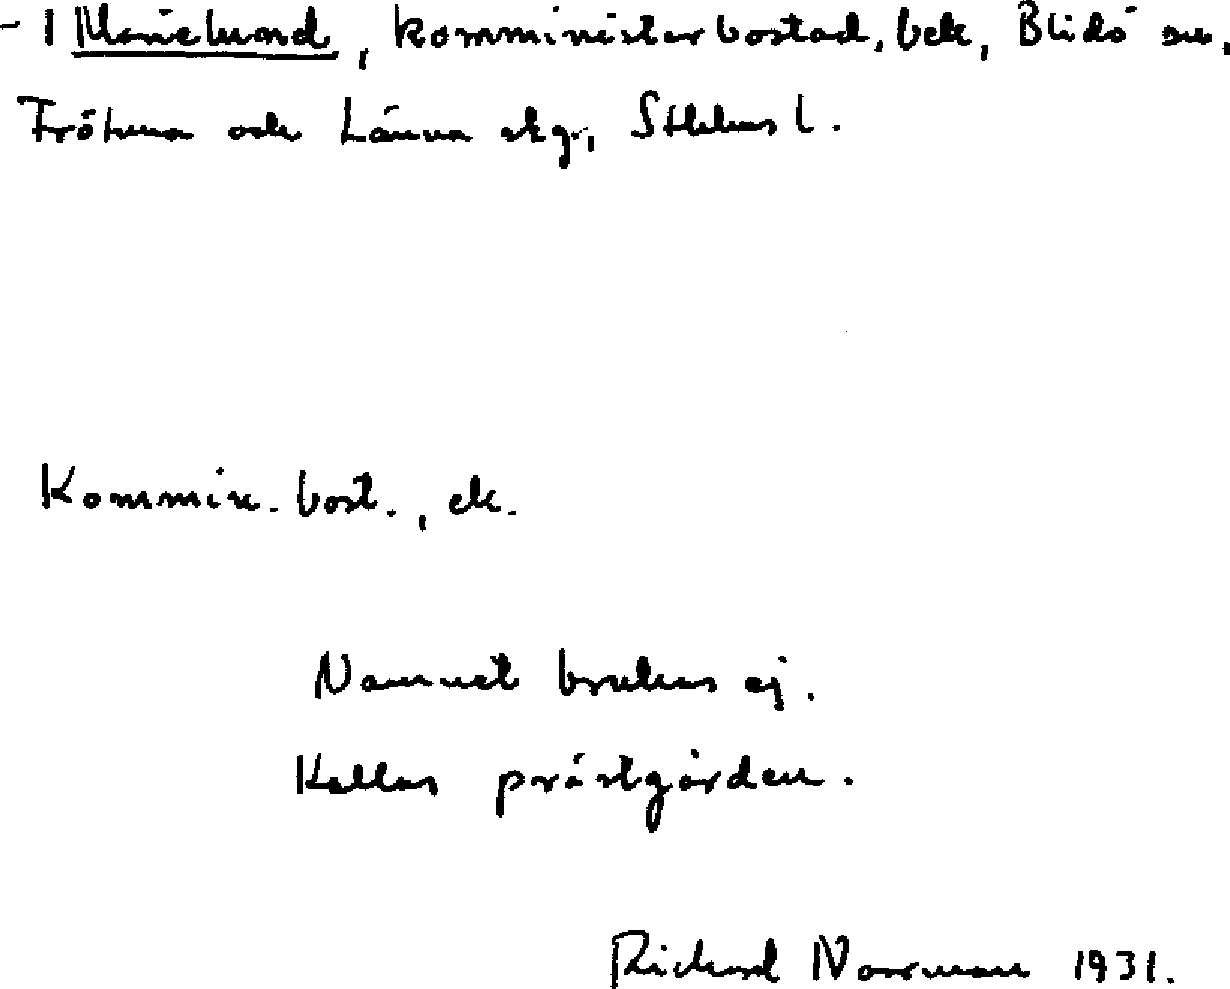 - 1 Marielund, komministerbostad, bek, Blidö sn,
Frötuna och Länna skg, Sthlms l.
Kommin. bost., ek.
Namnet brukas ej.
Kallas prästgården.
Richard Norrman 1931.